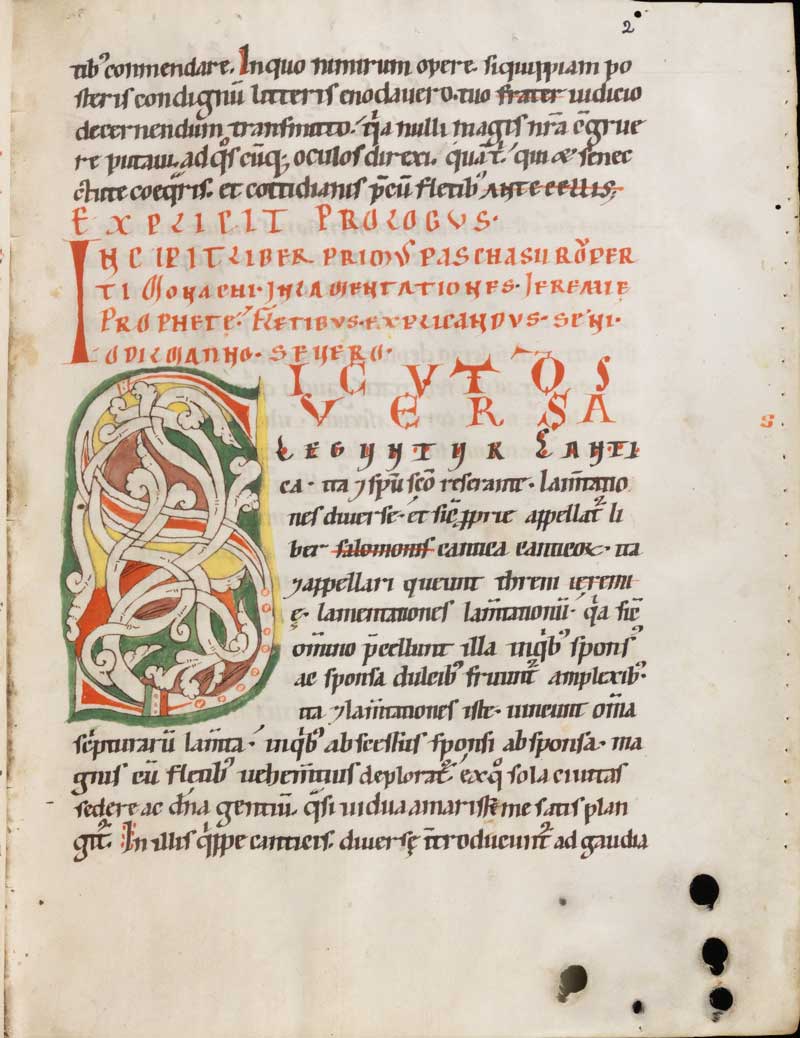 2
tib' conmendare. In quo nimirum opere. si quippiam po
steris condignū litteris enodavero. tuo frater iudicio
decernendum transmitto. q̇a nulli magis nr̄a c̄grue
re putavi. ad q̊s cūq; oculos direxi. quāt' qui & senec
ctute coeq̇ris. et cottidianis p̄cū fletib' antecellis;
EXPLICIT PROLOGVS.
INCIPIT LIBER PRIMVS PASCHASII RŌPER
TI MONACHI. IN LAMENTATIONES. IEREMIE
PROPHETE. FLETIBVS. EXPLICANDVS. SENI.
ODILMANNO. SEVERO.
SICVT QOS
VERSA
LEGVNTVR CANTI
ca. ita ⁊ spū sc̄o reserante. lam̄tatio
nes diverse. et sic̄ pprie appellat' li
ber salomonis cantica canticoꝝ. ita
⁊ appellari queunt threni ieremi
ę. lamentationes lam̄tationū. q̇a sic̄
om̄ino p̄cellunt illa inq̇b' spons'
ac sponsa dulcib' fruunt' amplexib'.
ita ⁊ lam̄tationes iste. vincunt om̄a
sċpturarū lam̄ta. inq̇b' abscessus sponsi ab sponsa. ma
gnis cū fletib' vehem̄tius deplorat' ex q̊ sola civitas
sedere ac dn̄a gentiū. q̇si vidua amarissime satis plan
git'. In illis q̇ppe canticis. diversę īntroducunt' ad gaudia
s